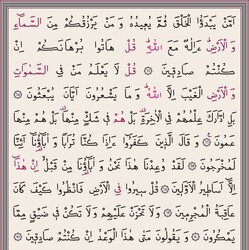 أَمَّنْ يَبْدَؤُا الْخَلْقَ ثُمَّ يُعِيدُهُ وَ مَنْ يَرْزُقُكُمْ مِنَ السَّمَاءِ
وَ الْاَرْضِ ءَاِلٰهٌ مَعَ اللّٰهِ قُلْ هَاتُوا بُرْهَانَكُمْ اِنْ
كُنْتُمْ صَادِقِينَ قُلْ لَا يَعْلَمُ مَنْ فِي السَّمٰوَاتِ
وَ الْاَرْضِ الْغَيْبَ اِلَّا اللّٰهُ وَ مَا يَشْعُرُونَ اَيَّانَ يُبْعَثُونَ
بَلِ ادَّارَكَ عِلْمُهُمْ فِي الْاٰخِرَةِ بَلْ هُمْ فِي شَكٍّ مِنْهَا بَلْ هُمْ مِنْهَا
عَمُونَ وَ قَالَ الَّذِينَ كَفَرُوا ءَاِذَا كُنَّا تُرَابًا وَ اٰبَاؤُنَا اَئِنَّا
لَمُخْرَجُونَ لَقَدْ وُعِدْنَا هٰذَا نَحْنُ وَ اٰبَاؤُنَا مِنْ قَبْلُ اِنْ هٰذَا
اِلَّا اَسَاطِيرُ الْاَوَّلِينَ قُلْ سِيرُوا فِي الْاَرْضِ فَانْظُرُوا كَيْفَ كَانَ
عَاقِبَةُ الْمُجْرِمِينَ وَ لَا تَحْزَنْ عَلَيْهِمْ وَ لَا تَكُنْ فِي ضَيْقٍ مِمَّا
يَمْكُرُونَ وَ يَقُولُونَ مَتٰى هٰذَا الْوَعْدُ اِنْ كُنْتُمْ صَادِقِينَ